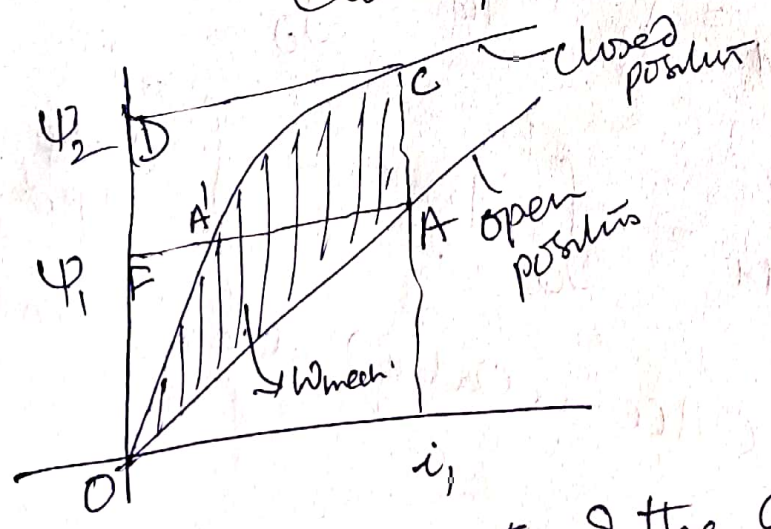 closed
position
C
ψ₂
D
A'
A
open
position
ψ₁
E
→ Wmech.
O
i₁